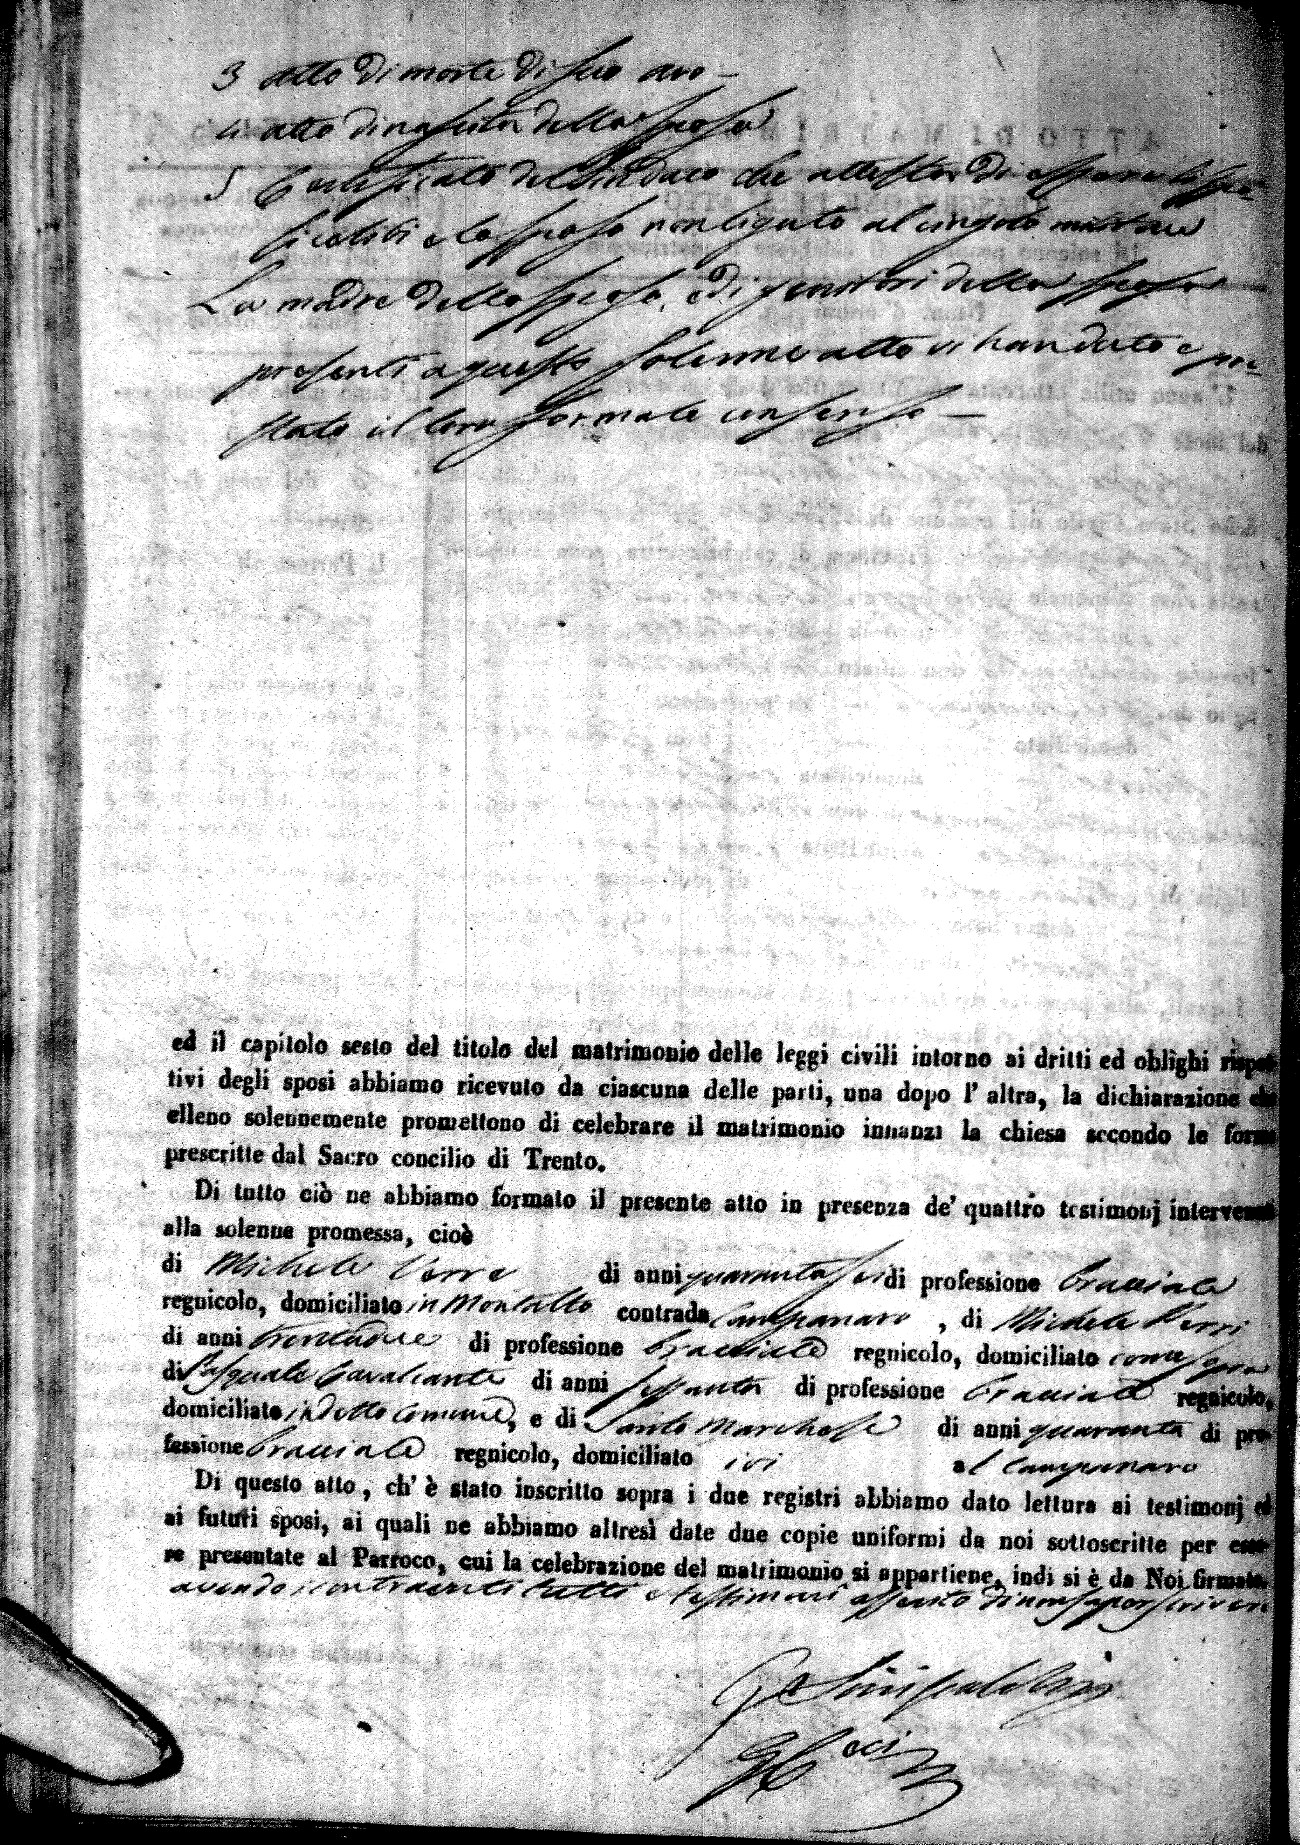 3 atto di morte di suo avo —
4 atto di nascita della sposa
5 Certificato del Sindaco che attesta di essere
celibi e lo sposo non ligato al cingolo militare
La madre dello sposo, e di genitori della sposa
presenti a questo solenne atto vi han dato e pre=
stato il loro formale consenso —
ed il capitolo sesto del titolo del matrimonio delle leggi civili intorno ai dritti ed oblighi rispet
tivi degli sposi abbiamo ricevuto da ciascuna delle parti, una dopo l' altra, la dichiarazione che
elleno solennemente promettono di celebrare il matrimonio innanzi la chiesa secondo le forme
prescritte dal Sacro concilio di Trento.
Di tutto ciò ne abbiamo formato il presente atto in presenza de' quattro testimonj intervenuti
alla solenne promessa, cioè
di Michele Perre di anni quarantasei di professione bracciale
regnicolo, domiciliato in Montalto contrada Campanaro , di Michele Perri
di anni trentadue di professione bracciale regnicolo, domiciliato come sopra
di Pasquale Cavalcante di anni sessanta di professione bracciale regnicolo,
domiciliato in detto comune, e di Santo Marchese di anni quaranta di pro-
fessione bracciale regnicolo, domiciliato ivi al Campanaro
Di questo atto, ch' è stato inscritto sopra i due registri abbiamo dato lettura ai testimonj ed
ai futuri sposi, ai quali ne abbiamo altresì date due copie uniformi da noi sottoscritte per esse-
re presentate al Parroco, cui la celebrazione del matrimonio si appartiene, indi si è da Noi firmato.
avendo i contraenti tutti e testimoni asserito di non saper scrivere